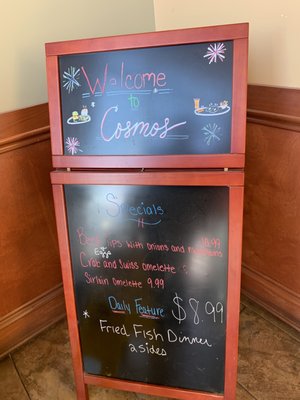 Welcome
to
Cosmos
Specials
Beef tips with onions and mushrooms 10.99
Eggs
Crab and Swiss omelette
Sirloin Omelette 9.99
Daily Feature $8.99
Fried Fish Dinner
2 sides